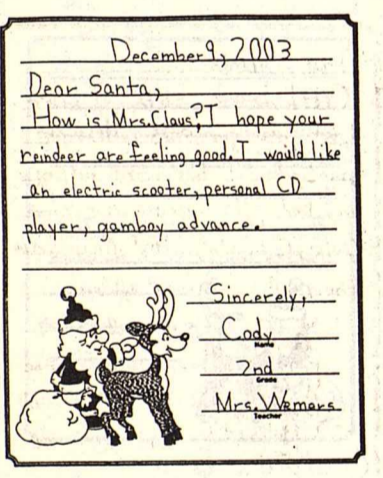 December 9, 2003
Dear Santa,
How is Mrs. Claus? I hope your
reindeer are feeling good. I would like
an electric scooter, personal CD
player, gamboy advance.
Sincerely,
Cody
Name
2nd
Grade
Mrs. Wemars
Teacher